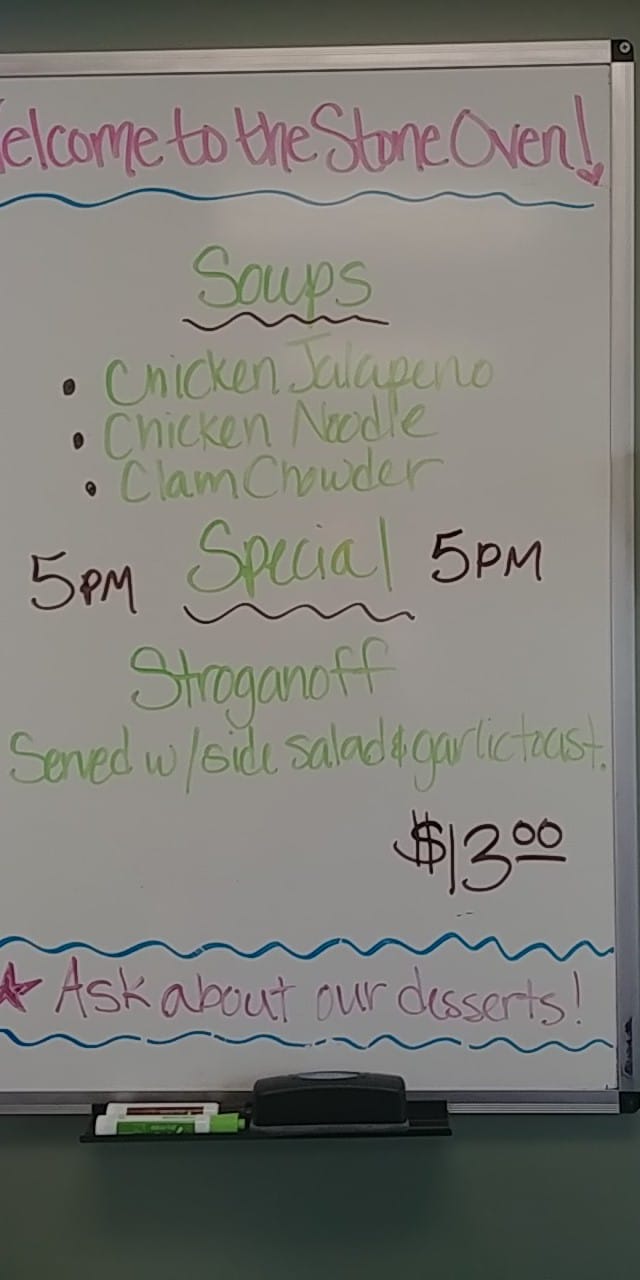 Welcome to the Stone Oven!
Soups
• Chicken Jalapeno
• Chicken Noodle
• Clam Chowder
5PM Special 5PM
Stroganoff
Served w/side salad & garlic toast.
$13.00
Ask about our desserts!